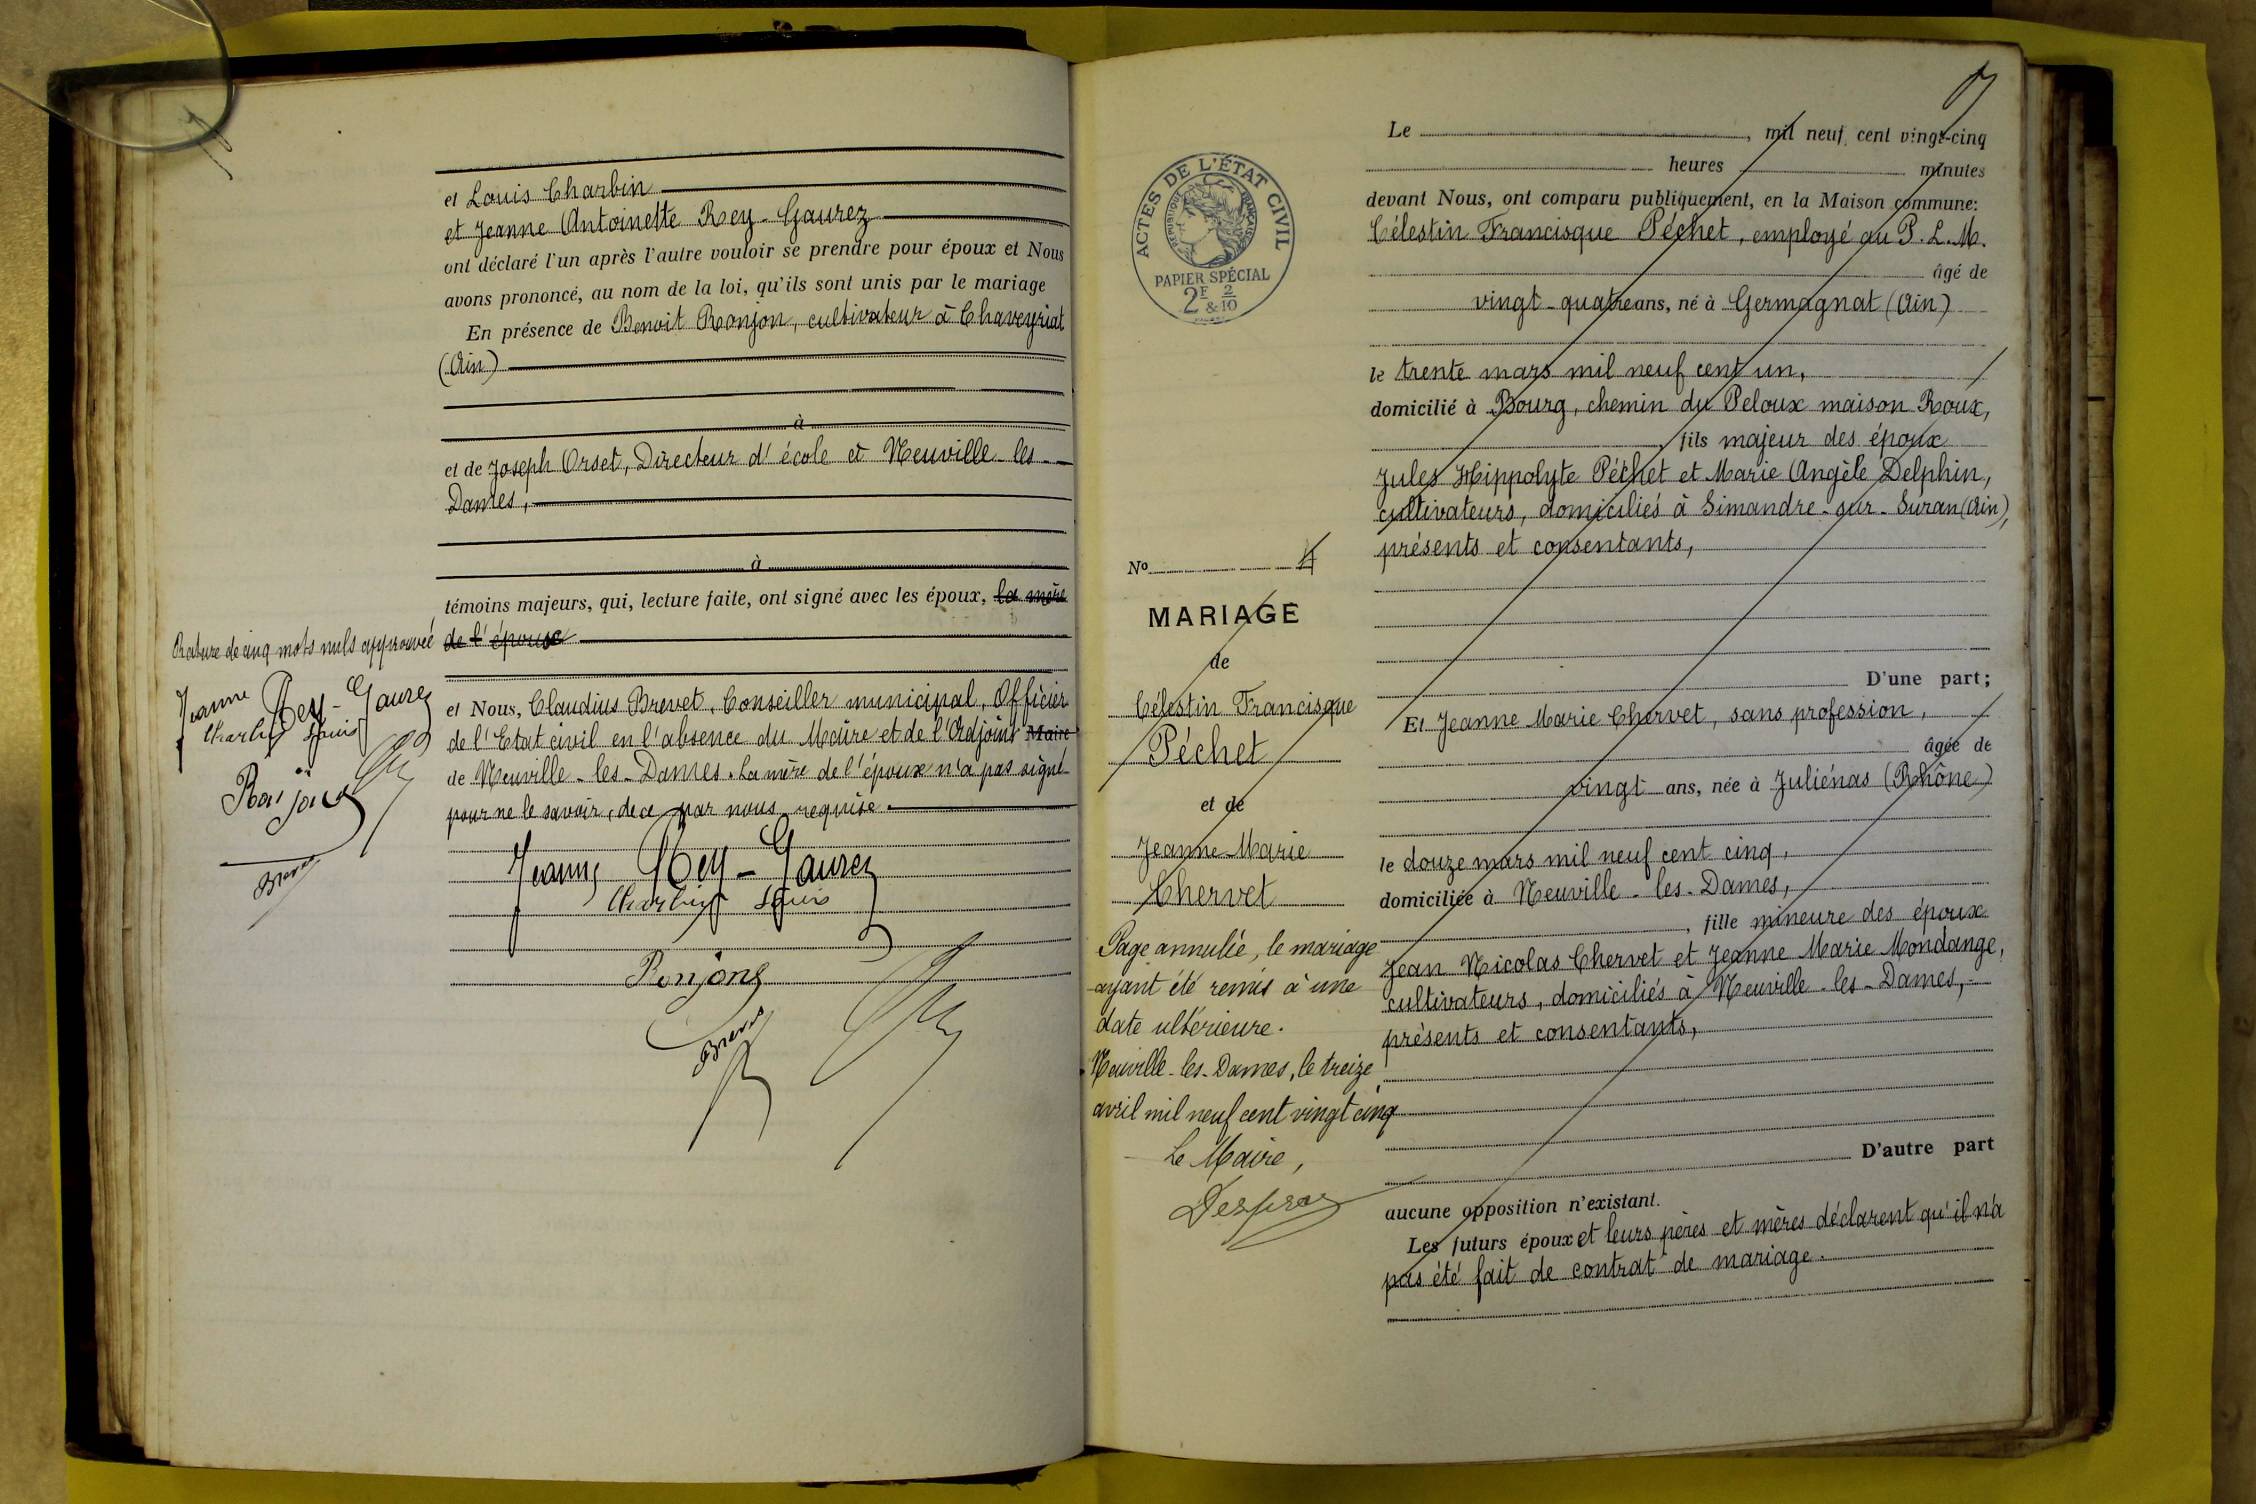 et Louis Charbin
et Jeanne Antoinette Rey-Gaurez
ont déclaré l'un après l'autre vouloir se prendre pour époux et Nous
avons prononcé, au nom de la loi, qu'ils sont unis par le mariage
En présence de Benoit Ronjon, cultivateur à Chaveyriat
(Ain)
à
et de Joseph Orset, Directeur d'école à Neuville-les-
Dames,
à
témoins majeurs, qui, lecture faite, ont signé avec les époux, la mère
de l'épouse
Rature de cinq mots nuls approuvée
Jeanne Rey-Gaurez
Charbin Louis
Ronjon
Brevet
et Nous, Claudius Brevet, Conseiller municipal, Officier
de l'Etat civil en l'absence du Maire et de l'Adjoint Maire
de Neuville-les-Dames. La mère de l'époux n'a pas signé
pour ne le savoir, de ce par nous requise.
Jeanne Rey-Gaurez
Charbin Louis
Ronjon
Brevet
ACTES DE L'ÉTAT CIVIL
RÉPUBLIQUE FRANÇAISE
PAPIER SPÉCIAL
2F & 2/10
No 4
MARIAGE
de
Célestin Francisque
Péchet
et de
Jeanne Marie
Chervet
Page annulée, le mariage
ayant été remis à une
date ultérieure.
Neuville-les-Dames, le treize
avril mil neuf cent vingt cinq
Le Maire,
Le , mil neuf cent vingt-cinq
heures minutes
devant Nous, ont comparu publiquement, en la Maison commune:
Célestin Francisque Péchet, employé au P.L.M.
âgé de
vingt-quatre ans, né à Germagnat (Ain)
le trente mars mil neuf cent un,
domicilié à Bourg, chemin du Peloux maison Roux,
, fils majeur des époux
Jules Hippolyte Péchet et Marie Angèle Delphin,
cultivateurs, domiciliés à Simandre-sur-Suran (Ain),
présents et consentants,
D'une part;
Et Jeanne Marie Chervet, sans profession,
âgée de
vingt ans, née à Juliénas (Rhône)
le douze mars mil neuf cent cinq,
domiciliée à Neuville-les-Dames,
, fille mineure des époux
Jean Nicolas Chervet et Jeanne Marie Mondange,
cultivateurs, domiciliés à Neuville-les-Dames,
présents et consentants,
D'autre part
aucune opposition n'existant.
Les futurs époux et leurs pères et mères déclarent qu'il n'a
pas été fait de contrat de mariage.